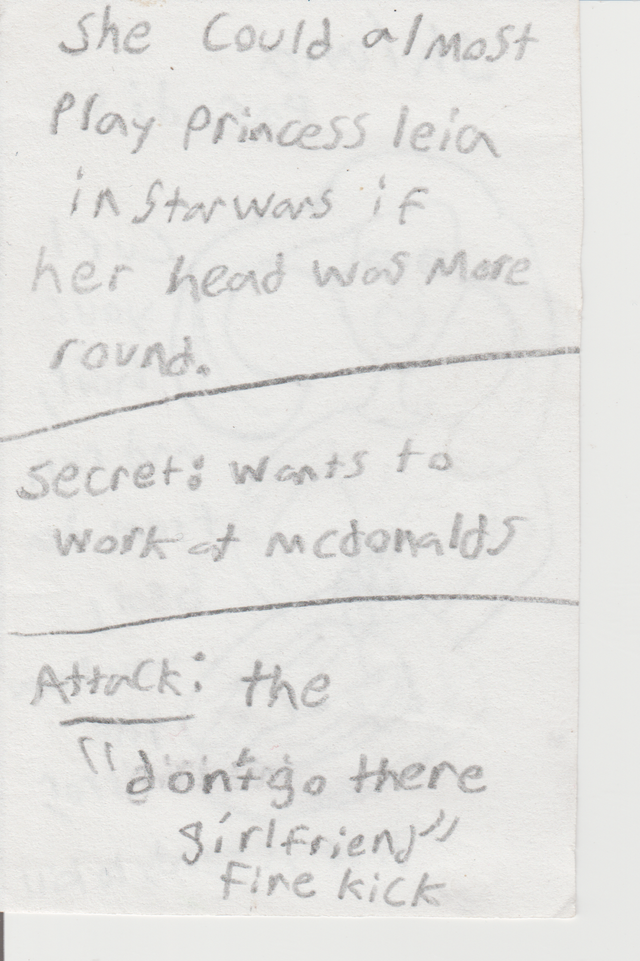 She Could almost
Play Princess leia
in Starwars if
her head was more
round.
Secret: wants to
work at mcdonalds
Attack: the
"don't go there
girlfriend"
fire kick